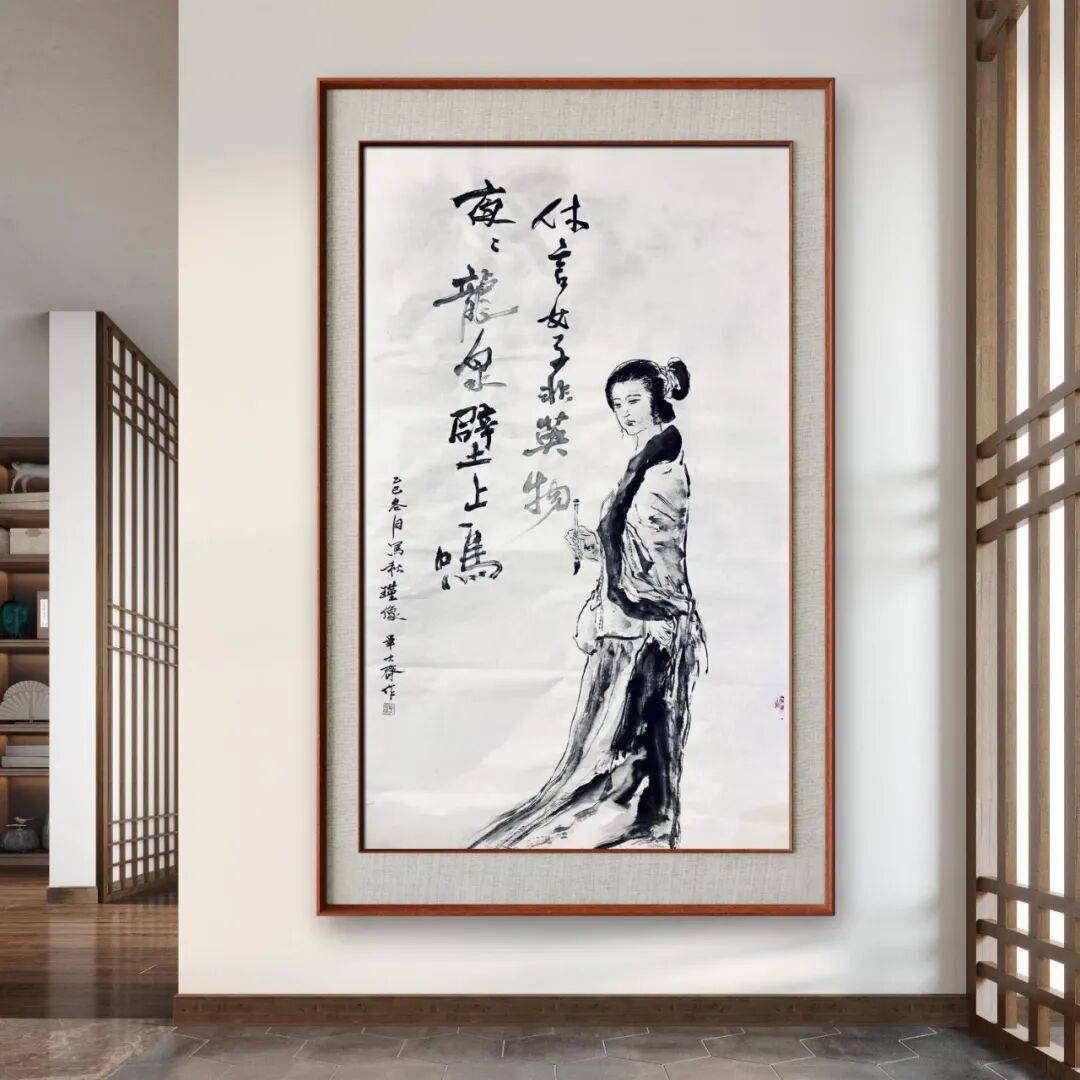 休言女子非英物
夜々龍泉壁上鳴
乙巳冬月寫秋瑾像 作